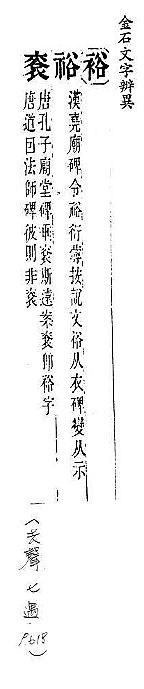 金石文字辨異
裕
𥙿
漢堯廟碑令𥙿衍蕩按說文裕从衣碑變从示
袞
唐孔子廟堂碑垂袞斯遠案袞即裕字
唐道因法師碑彼則非袞
(去聲 七遇 P618)